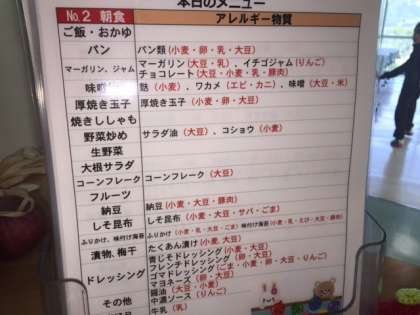 本日のメニュー
No.2 朝食 アレルギー物質
ご飯・おかゆ
パン パン類(小麦・卵・乳・大豆)
マーガリン、ジャム マーガリン(大豆・乳)、イチゴジャム(りんご)
チョコレート(大豆・小麦・乳・豚肉)
味噌 麩(小麦)、ワカメ(エビ・カニ)、味噌(大豆・米)
厚焼き玉子 厚焼き玉子(小麦・卵・大豆)
焼きししゃも
野菜炒め サラダ油(大豆)、コショウ(小麦)
生野菜
大根サラダ
コーンフレーク コーンフレーク(大豆)
フルーツ
納豆 納豆(小麦・大豆・豚肉)
しそ昆布 しそ昆布(小麦・大豆・サバ・ごま)
ふりかけ、味付け海苔 ふりかけ(小麦・乳・大豆・ごま)味付け海苔(小麦・乳・えび・大豆・豚肉)
漬物、梅干 たくあん漬け(小麦、大豆)
ドレッシング 青じそドレッシング(小麦・大豆)
フレンチドレッシング(小麦・卵・大豆)
ゴマドレッシング(ごま・小麦・卵・大豆・りんご)
マヨネーズ(卵・大豆)
その他 醤油(大豆・小麦)
中濃ソース(りんご)
牛乳(乳)